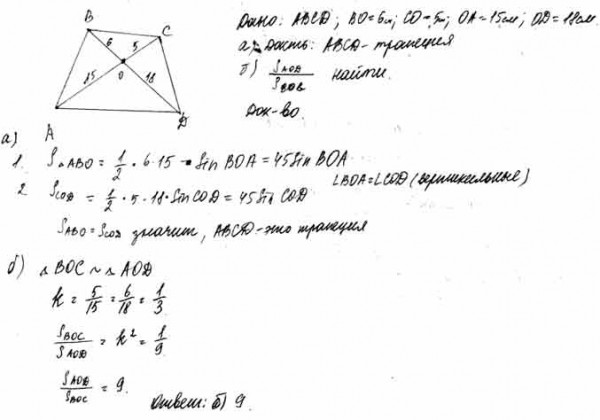 B
C
6
5
15
O
18
A
D
Дано: ABCD; BO=6см; CO=5см; OA=15см; OD=18см.
а) Док-ть: ABCD-трапеция
б) S_AOD/S_COB найти.
Док-во.
а)
1. S△ABO = 1/2 • 6 • 15 • Sin BOA = 45 Sin BOA
∠BOA=∠COD (вертикальные)
2 S_COD = 1/2 • 5 • 18 • Sin COD = 45 Sin COD
S_ABO = S_COD значит, ABCD-это трапеция
б) △BOC ~ △AOD
k = 5/15 = 6/18 = 1/3
S_BOC/S_AOD = k² = 1/9
S_AOD/S_BOC = 9.
Ответ: б) 9.